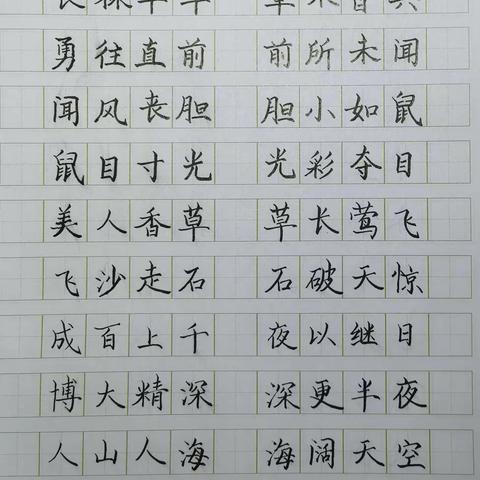 勇往直前 前所未闻
闻风丧胆 胆小如鼠
鼠目寸光 光彩夺目
美人香草 草长莺飞
飞沙走石 石破天惊
成百上千 夜以继日
博大精深 深更半夜
人山人海 海阔天空